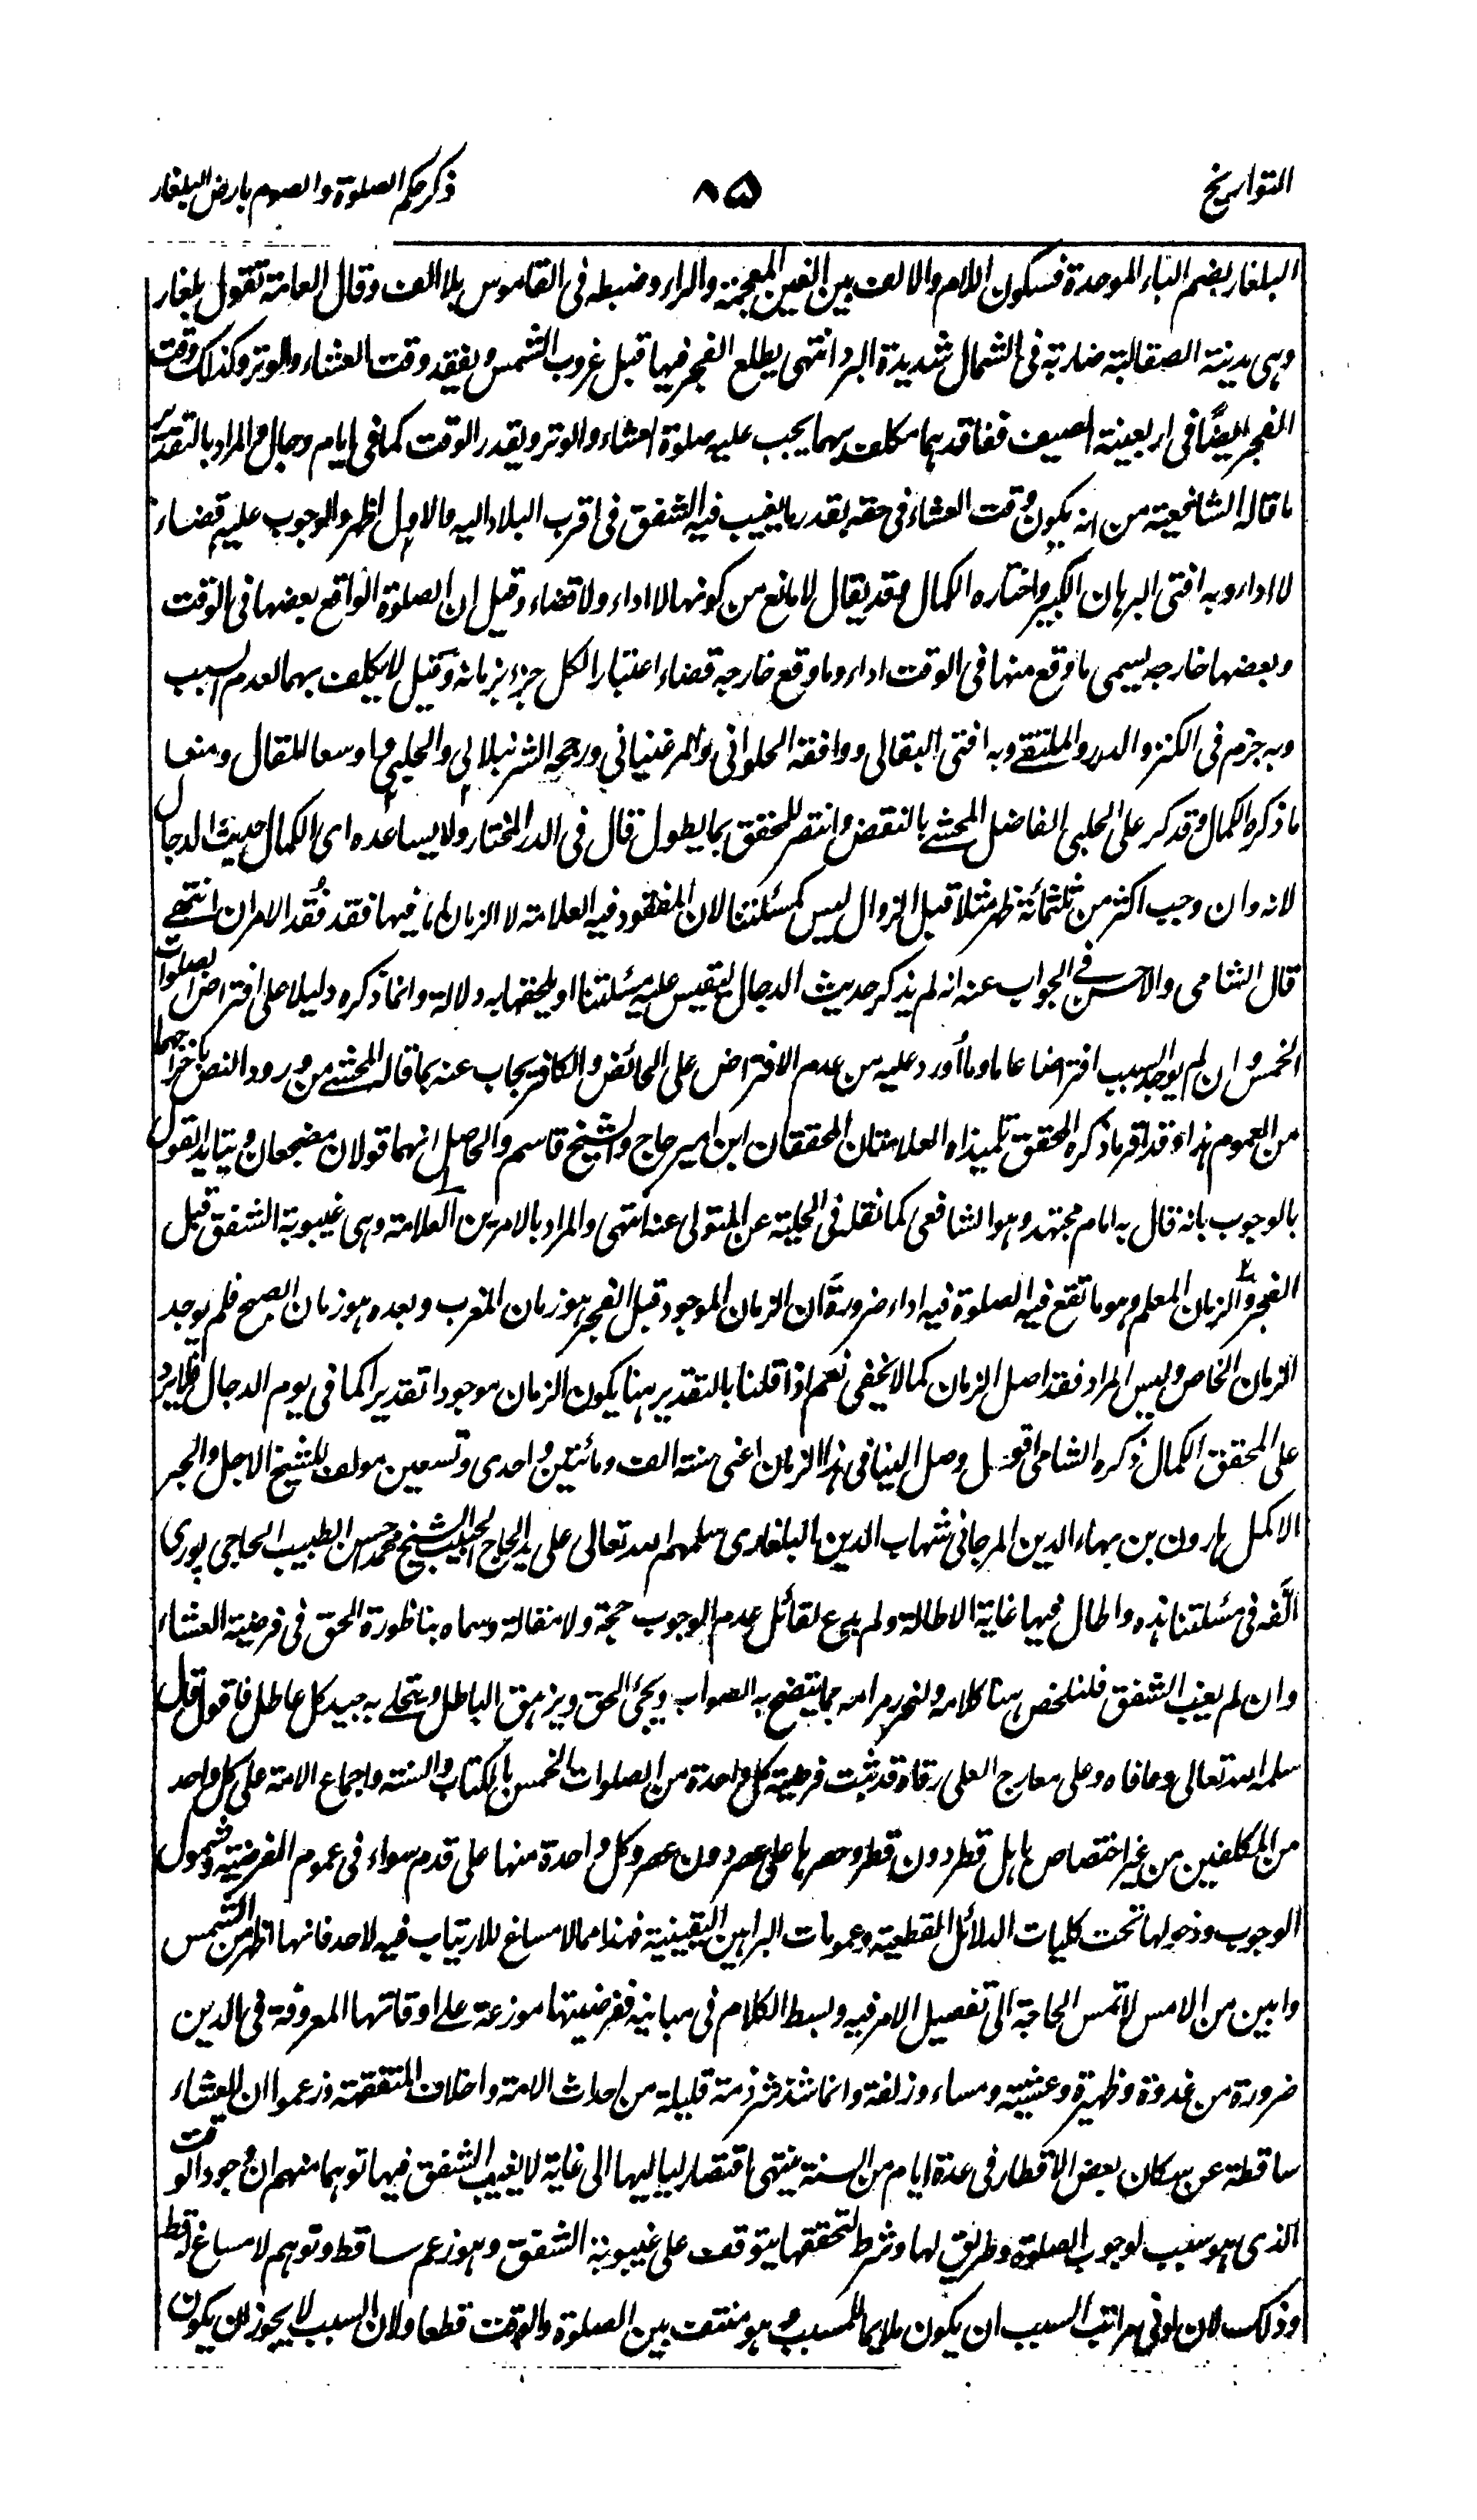 التواريخ
٨٥
ذكر حكم الصلوة والصوم بارض البلغار
البلغار بضم الباء الموحدة فسكون اللام والالف بين الغين المعجمة والراء وضبطه في القاموس بلا الف وقال العامة تقول بلغار
وهي مدينة الصقالبة ضاربة في الشمال شديدة البرد انتهى يطلع الفجر فيها قبل غروب الشمس ويفقد وقت العشاء والوتر وكذلك وقت
الفجر ايضًا في اربعينة الصيف ففاقدهما مكلف بهما يجب عليه صلوة العشاء والوتر ويقدر الوقت كما في ايام دجال والمراد بالتقدير
ما قاله الشافعية من انه يكون وقت العشاء في حقه بقدر ما يغيب فيه الشفق في اقرب البلاد اليه والاول اظهر والوجوب عليه قضاء
لا اداء وبه افتى البرهان الكبير واختاره الكمال وقد يقال لا مانع من كونهما لا اداء ولا قضاء وقيل ان الصلوة الواقع بعضها في الوقت
وبعضها خارجه يسمى ما وقع منها في الوقت اداء وما وقع خارجه قضاء اعتبارا لكل جزء بزمانه وقيل لا يكلف بهما لعدم السبب
وبه جزم في الكنز والدرر والملتقى وبه افتى البقالي ووافقه الحلواني والمرغيناني ورجحه الشرنبلالي والحلبي واوسعا المقال ومنعا
ما ذكره الكمال وقد كر على الحلبي الفاضل المحشى بالنقض وانتصر للمحقق بما يطول قال في الدر المختار ولا يساعده اى الكمال حديث الدجال
لانه وان وجب اكثر من ثلثمائة ظهر مثلا قبل الزوال ليس كمسئلتنا لان المفقود فيه العلامة لا الزمان واما فيها فقد فُقد الامران انتهى
قال الشامي والاحسن في الجواب عنه انه لم يذكر حديث الدجال ليقيس عليه مسئلتنا او يلحقها به دلالة وانما ذكره دليلا على افتراض الصلوات
الخمس وان لم يوجد السبب افتراضا عاما وما أورد عليه من عدم الافتراض على الحائض والكافر يجاب عنه بما قاله المحشى من ورود النص باخراجهما
من العموم هذا وقد اقر ما ذكره المحقق تلميذاه العلامتان المحققان ابن امير حاج والشيخ قاسم والحاصل انهما قولان مصححان ويتايد القول
بالوجوب بانه قال به امام مجتهد وهو الشافعي كما نقله في الحلية عن المتولى عنه انتهى والمراد بالامرين العلامة وهي غيبوبة الشفق قبل
الفجر والزمان المعلم وهو ما تقع فيه الصلوة فيه اداء ضرورةَ ان الزمان الموجود قبل الفجر هو زمان المغرب وبعده هو زمان الصبح فلم يوجد
الزمان الخاص وليس المراد فقد اصل الزمان كما لا يخفى نعم اذا قلنا بالتقدير هنا يكون الزمان موجودا تقديرا كما في يوم الدجال فلا يرد
على المحقق الكمال ذكره الشامي اقول وصل الينا في هذا الزمان اعنى سنة الف ومائتين واحدى وتسعين مولف للشيخ الاجل والحبر
الاكمل هارون بن بهاء الدين المرجاني شهاب الدين البلغارى سلمهم الله تعالى على يد الحاج الحبيب الشيخ محمد حسن الطبيب الحاجى پورى
الَّفه في مسئلتنا هذه واطال فيها غاية الاطالة ولم يدع لقائل عدم الوجوب حجة ولا مقالة وسماه بناظورة الحق في فرضية العشاء
وان لم يغب الشفق فلنلخص هنا كلامه ولنحرر مرامه مما يتضح به الصواب ويجئ الحق ويزهق الباطل ويتحلى به جيد كل عاطل فاقول قال
سلمه الله تعالى وعافاه وعلى معارج العلى رقاه قد ثبت فرضية كل واحدة من الصلوات الخمس بالكتاب والسنة واجماع الامة على كل واحد
من المكلفين من غير اختصاص باهل قطر دون قطر وحصرها على عصر دون عصر وكل واحدة منها على قدم سواء في عموم الفرضية وشمول
الوجوب ودخولها تحت كليات الدلائل القطعية وعمومات البراهين اليقينية فهذا مما لا مساغ للارتياب فيه لاحد فانها اظهر من الشمس
وابين من الامس لا تمس الحاجة الى تفصيل الامر فيه وبسط الكلام في مبانيه ففرضيتها موزعة على اوقاتها المعروفة في الدين
ضرورة من غدوة وظهيرة وعشية ومساء وزلفة وانما شذ شرذمة قليلة من احداث الامة واخلاف المتفقهة وزعموا ان العشاء
ساقطة عن سكان بعض الاقطار في عدة ايام من السنة ينتهى اقتصار لياليها الى غاية لا يغيب الشفق فيها توهما منهم ان وجود الوقت
الذي هو سبب لوجوب الصلوة وظرف لها وشرط لتحققها يتوقف على غيبوبة الشفق وهو زعم ساقط وتوهم لا مساغ له قط
وذلك لان ادنى مراتب السبب ان يكون ملايما للمسبب وهو منتف بين الصلوة والوقت قطعا ولان السبب لا يجوز ان يكون